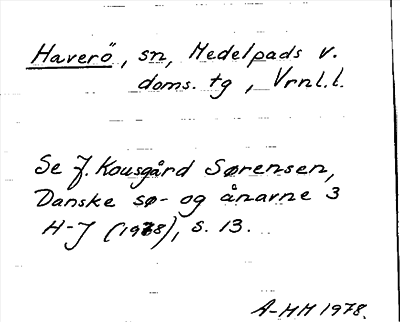 Haverö, sn, Medelpads v.
doms. tg, Vrnl.l.
Se J. Kousgård Sørensen,
Danske sø- og ånavne 3
H-J (1978), s. 13.
A-HM 1978.